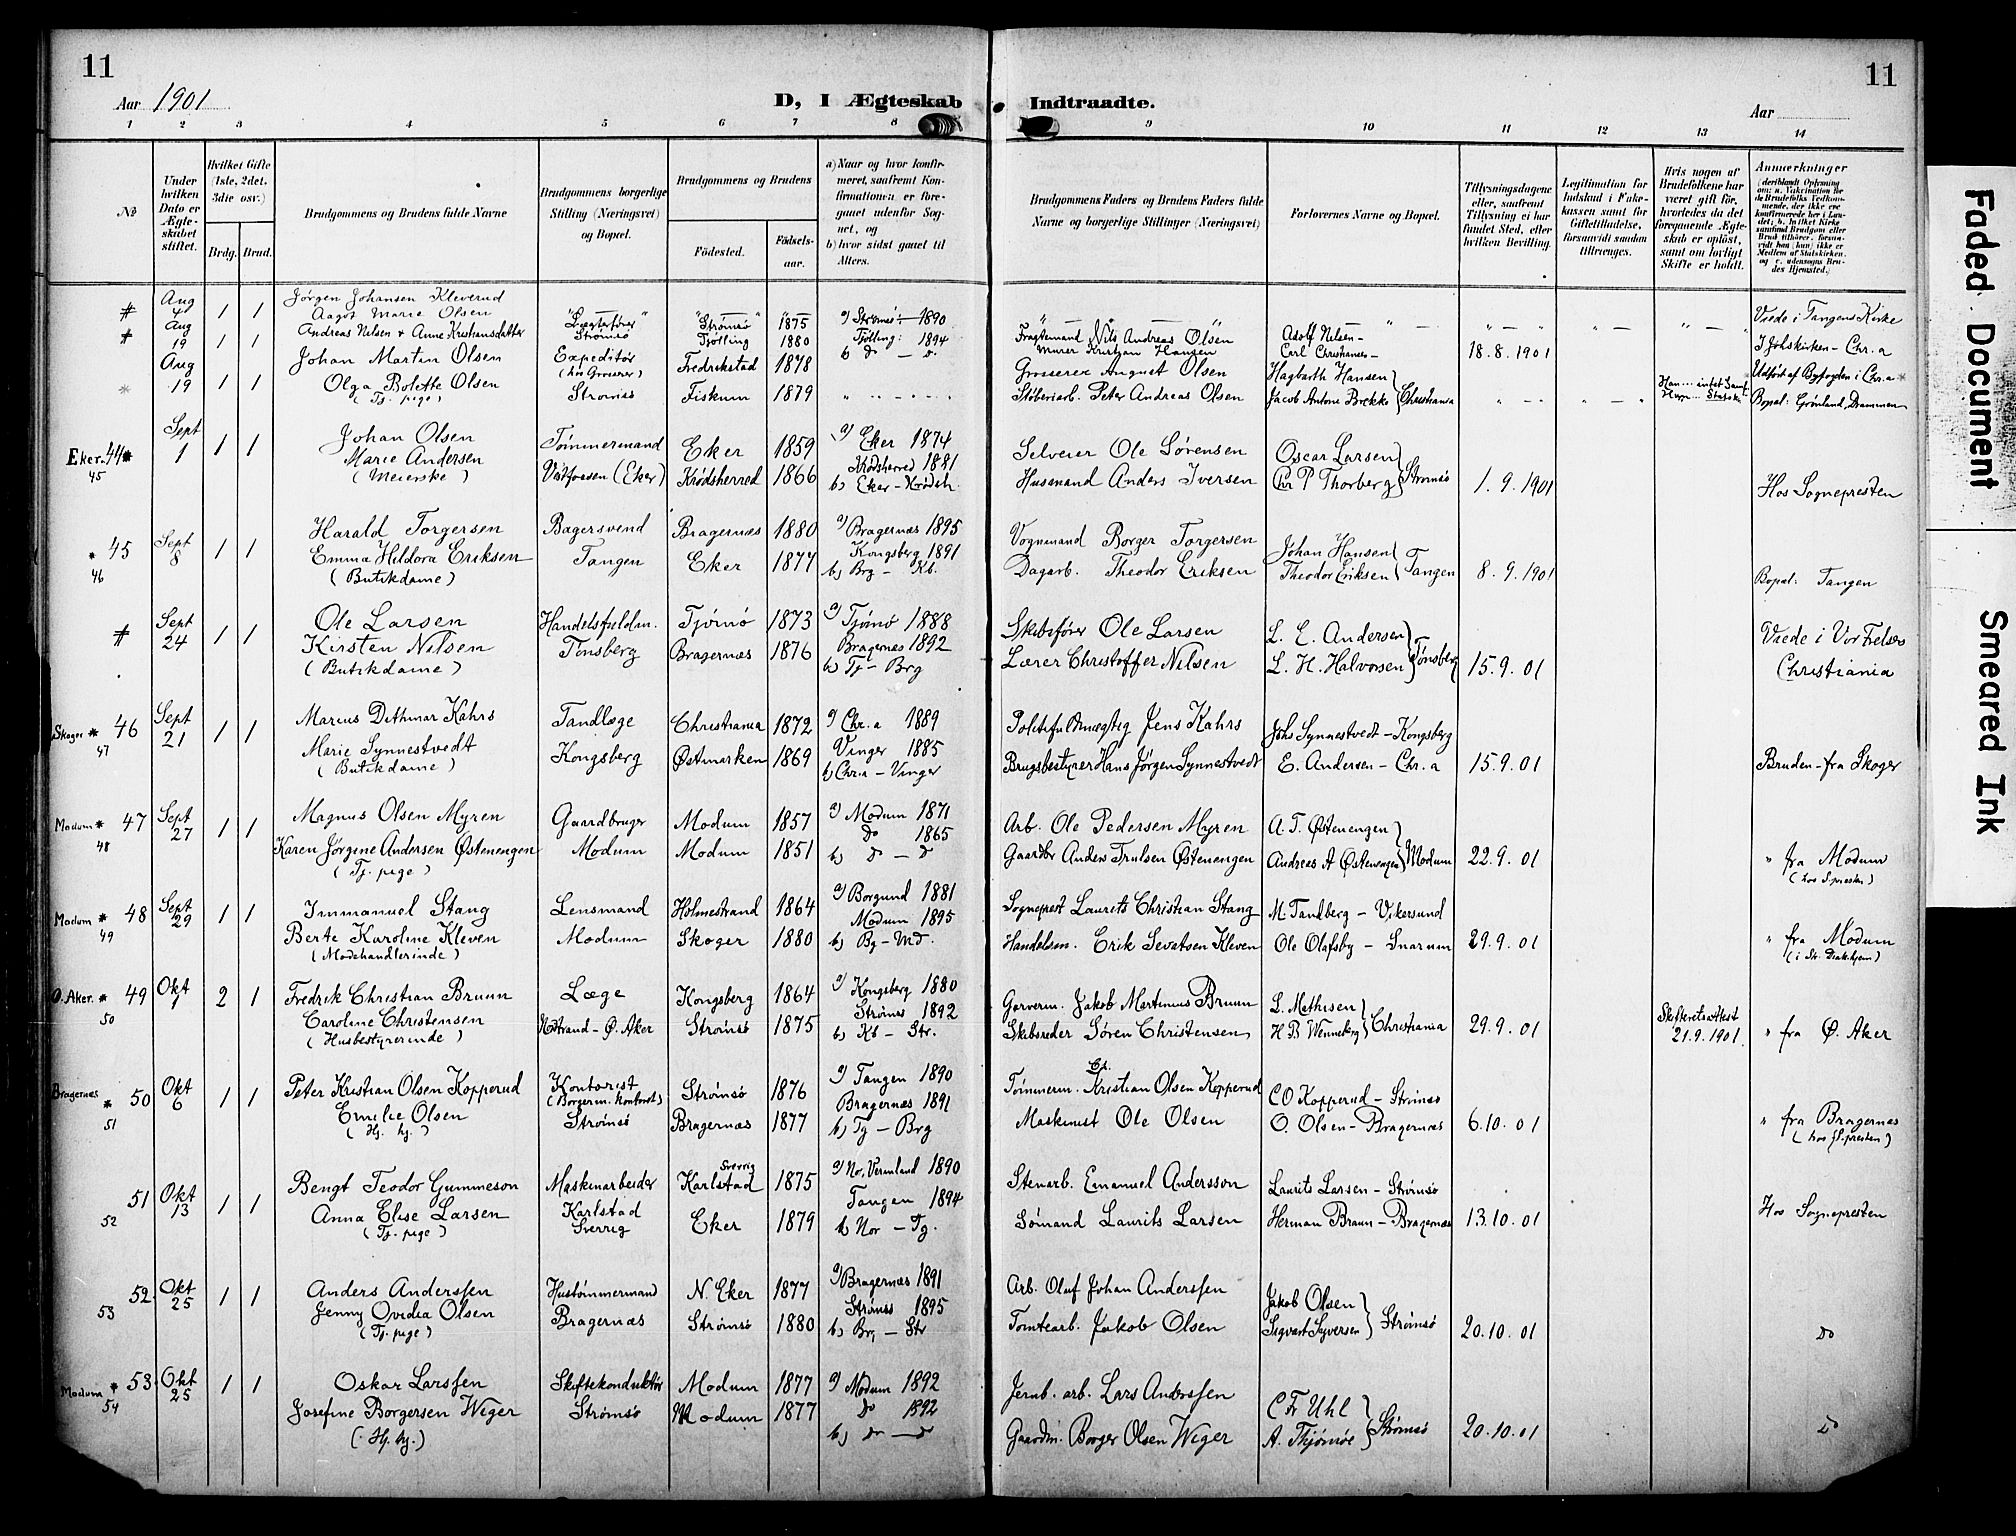 11
Aar 1901
D, I Ægteskab Indtraadte.
11
Aar
1 2 3 4 5 6 7 8 9 10 11 12 13 14
No
Under hvilken Dato er Ægteskabet stiftet.
Hvilket Gifte (1ste, 2det, 3die osv.)
Brdg. Brud.
Brudgommens og Brudens fulde Navne
Brudgommens borgerlige Stilling (Næringsvei) og Bopæl.
Brudgommens og Brudens
Födested. Födsels-aar.
a) Naar og hvor konfirmeret, saafremt Konfirmationen er foregaaet udenfor Sognet, og
b) hvor sidst gaaet til Alters.
Brudgommens Faders og Brudens Faders fulde Navne og borgerlige Stillinger (Næringsvei)
Forlovernes Navne og Bopæl.
Tillysningsdagene eller, saafremt Tillysning ei har fundet Sted, efter hvilken Bevilling.
Legitimation for Indskud i Enkekassen samt for Giftetilladelse, forsaavidt saadan tiltrænges.
Hvis nogen af Brudefolkene har været gift før, hvorledes da det foregaaende Ægteskab er opløst, samt om lovligt Skifte er holdt.
Anmærkninger
Jørgen Johansen Kleverud
# Aug 4 1 1 Aagot Marie Olsen Strømsø 1875 a) Strømsø 1890 Viede i Tangens Kirke
# Aug 19 1 1 Andreas Nilsen + Anne Kristiansdatter Strømsø Tjølling 1880 Tjølling 1894
Fragtemand Nils Andreas Olsen Adolf Nilsen
Murer Kristjan Hansen Carl Christiansen 18.8.1901 Chr.a
Aug 19 1 1 Johan Martin Olsen Expeditør (hos Grosserer) Fredrikstad 1878 Grosserer August Olsen Hagbarth Hansen Udført af Byfogden i Chr.a
Olga Bolette Olsen Strømsø Fiskum 1879 Støberiarb. Peter Andreas Olsen Jacob Antone Brekke Christiania Bopæl: Grønland, Drammen
(Tj. pige)
Eker. 44 Sept 1 1 1 Johan Olsen Tømmermand Eker 1859 a) Eker 1874 Selveier Ole Sørensen Oscar Larsen
45 Marie Andersen Vestfossen (Eker) Krødsherred 1866 Krødsherred 1881 Husmand Anders Iversen Chr P Thorberg Strømsø 1.9.1901 Hos Sognepresten
(Meierske) b) Eker - Krødsh.
* 45 Sept 8 1 1 Harald Torgersen Bagersvend Bragernæs 1880 a) Bragernæs 1895 Vognmand Borger Torgersen Johan Hansen
46 Emma Heldora Eriksen Tangen Eker 1877 Kongsberg 1891 Dagarb. Theodor Eriksen Theodor Eriksen Tangen 8.9.1901 Bopæl: Tangen
(Butikdame) b) Brg - Kb.
# Sept 24 1 1 Ole Larsen Handelsfuldm. Tjømø 1873 a) Tjømø 1888 Skibsfører Ole Larsen L. E. Andersen Viede i Vor Frelsers
Kirsten Nilsen Tønsberg Bragernæs 1876 Bragernæs 1892 Lærer Christoffer Nilsen L. H. Halvorsen Tønsberg 15.9.01 Christiania
(Butikdame) b) Tj - Brg
Skoger * 46 Sept 21 1 1 Marius Dithmar Kahrs Tandlæge Christiania 1872 a) Chr.a 1889 Politifuldmægtig Jens Kahrs Johs Synnestvedt - Kongsberg
47 Marie Synnestvedt Kongsberg Østmarken 1869 Vinger 1885 Brugsbestyrer Hans Jørgen Synnestvedt E. Andersen - Chr.a 15.9.01 Bruden fra Skoger
(Butikdame) b) Chr.a - Vinger
Modum * 47 Sept 27 1 1 Magnus Olsen Myren Gaardbruger Modum 1857 a) Modum 1871 Arb. Ole Pedersen Myren A. T. Østenengen
48 Karen Jørgine Andersen Østenengen Modum Modum 1851 Do 1865 Gaardbr Anders Trulsen Østenengen Andreas A Østenengen Modum 22.9.01 " fra Modum
(Tj. pige) b) D - D (hos S.presten)
Modum * 48 Sept 29 1 1 Immanuel Stang Lensmand Holmestrand 1864 a) Borgund 1881 Sogneprest Laurits Christian Stang M. Tandberg - Vikersund
49 Berte Karoline Kleven Modum Skoger 1880 Modum 1895 Handelsm. Erik Sevatsen Kleven Ole Olafsby - Snarum 29.9.01 " fra Modum
(Modehandlerinde) b) Bg - Md.
Ø. Aker. * 49 Okt 1 2 1 Fredrik Christian Bruun Læge Kongsberg 1864 a) Kongsberg 1880 Garverm. Jakob Martinus Bruun L. Mathisen
50 Caroline Christensen Nostrand - Ø. Aker Strømsø 1875 Strømsø 1892 Skibsreder Søren Christensen H B Wenneberg Christiania 29.9.01 Skifteretsattest 21.9.1901 " fra Ø. Aker
(Husbestyrerinde) b) Kb - Str.
Bragernæs * 50 Okt 6 1 1 Peter Kristian Olsen Kopperud Kontorist Strømsø 1876 a) Tangen 1890 Tømmerm. Kristian Olsen Kopperud C O Kopperud - Strømsø
51 Emilie Olsen Strømsø Bragernæs 1877 Bragernæs 1891 Maskinist Ole Olsen O. Olsen - Bragernæs 6.10.01 " fra Bragernæs
(Hj. hj.) b) Tg - Brg
51 Okt 13 1 1 Bengt Teodor Gummeson Maskinarbeider Karlstad Sverrig 1875 a) Nor, Vermland 1890 Stenarb. Emanuel Andersson Laurits Larsen - Strømsø
52 Anna Elise Larsen Karlstad Sverrig Eker 1879 Tangen 1894 Sømand Laurits Larsen Herman Braun - Bragernæs 13.10.01 Hos Sognepresten
(Tj. pige) b) Nor - Tg.
52 Okt 25 1 1 Anders Anderssen Hustømmermand N. Eker 1877 a) Bragernæs 1891 Arb. Oluf Johan Anderssen Jakob Olsen
53 Jenny Ovidia Olsen Bragernæs Strømsø 1880 Strømsø 1895 Tomtearb. Jakob Olsen Sigvart Syversen Strømsø 20.10.01 Do
(Tj. pige) b) Brg - Str
Modum * 53 Okt 25 1 1 Oskar Larssen Skiftekonduktør Modum 1877 a) Modum 1892 Jernb. arb. Lars Anderssen C Fr Uhl
54 Josefine Borgersen Weger Strømsø Modum 1877 Do 1892 Gaardm. Borger Olsen Weger A. Thjømøe Strømsø 20.10.01 Do
(Hj. hj.) b) Do - D
Faded Document
Smeared Ink